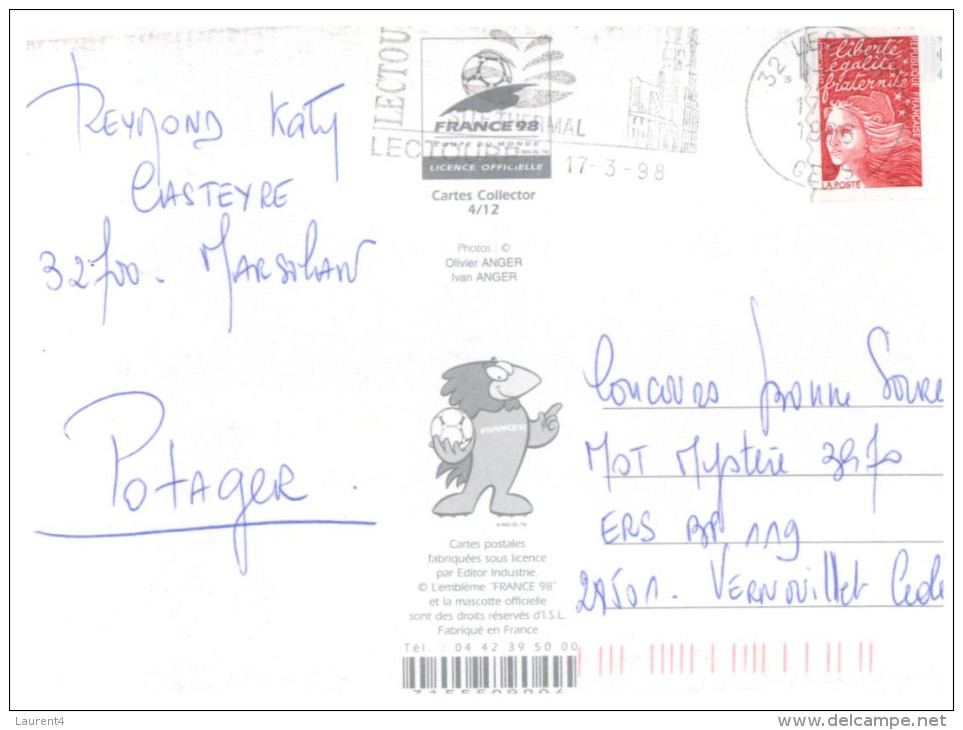 REYMOND Katy
CASTEYRE
32700. MARSOLAN
POTAGER.
LECTOU
FRANCE 98
LICENCE OFFICIELLE
THERMAL
LECTOURE
17-3-98
Cartes Collector
4/12
Photos : ©
Olivier ANGER
Ivan ANGER
32
GERS
liberté
égalité
fraternité
REPUBLIQUE FRANÇAISE
LA POSTE
FRANCE 98
Concours Bonne Soirée
MOT Mystère
ERS BP 119
27501. VERNOUILLET Cedex
Cartes postales
fabriquées sous licence
par Editor Industrie.
© L'emblème "FRANCE 98"
et la mascotte officielle
sont des droits réservés d'I.S.L.
Fabriqué en France
Tél. : 04 42 39 50 00
Laurent4
www.delcampe.net